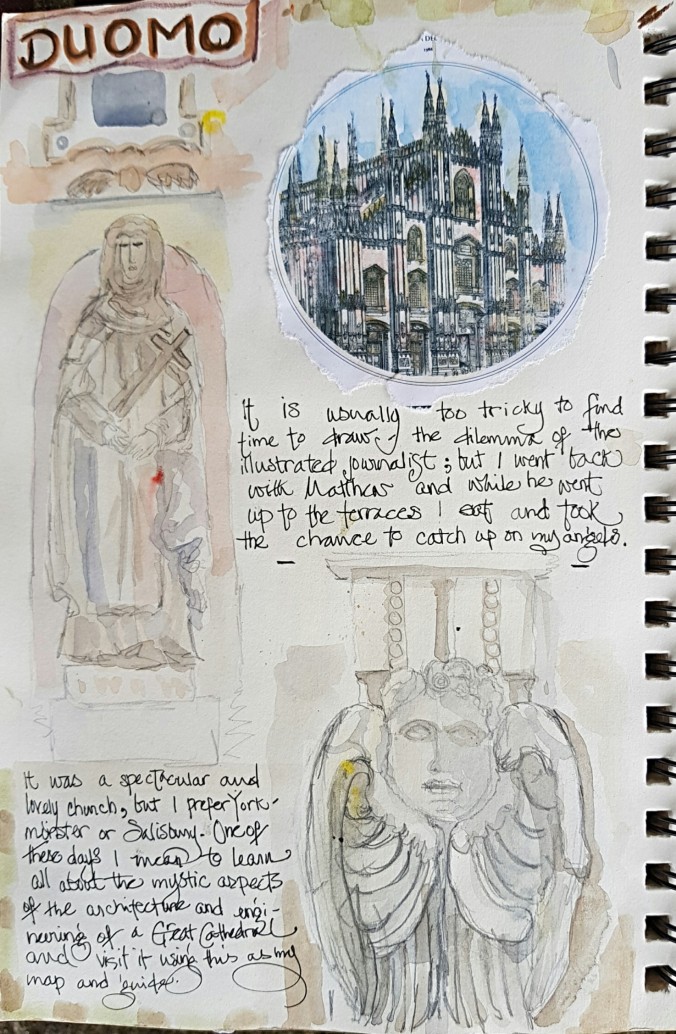 DUOMO
It is usually too tricky to find
time to draw, the dilemma of the
illustrated journalist; but I went back
with Matthew and while he went
up to the terraces I sat and took
the chance to catch up on my angels.
It was a spectacular and
lovely church, but I prefer York-
minster or Salisbury. One of
these days I mean to learn
all about the mystic aspects
of the architecture and engi-
neering of a Great Cathedral
and visit it using this as my
map and guide.